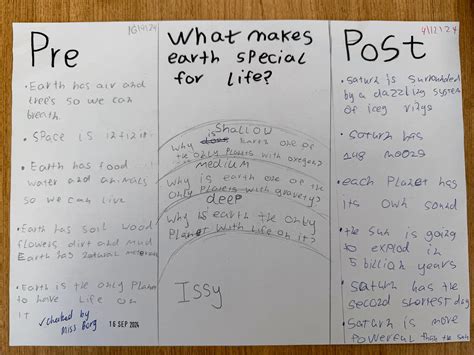 Pre
• Earth has air and
tree's so we can
breath.
• SPace is infinit.
• Earth has food
water and animals
so we can live
• Earth has soil wood
flowers dirt and mud
Earth has natural
• Earth is the only Planet
to have life on
it
✓ checked by
Miss Borg
16 SEP 2024
What makes
earth special
for life?
Shallow
Why is earth one of
the only Planets with oxegen?
medium
Why is earth one of the
only Planets with gravity?
deep
Why is earth the only
Planet with life on it?
Issy
4/12/24
Post
• saturn is surrounded
by a dazzling system
of iceg rings
• saturn has
moons
• each Planet has
its own sound
• the sun is going
to explod in
5 billion years
• saturn has the
second shortest day
• saturn is more
powerful than the sun